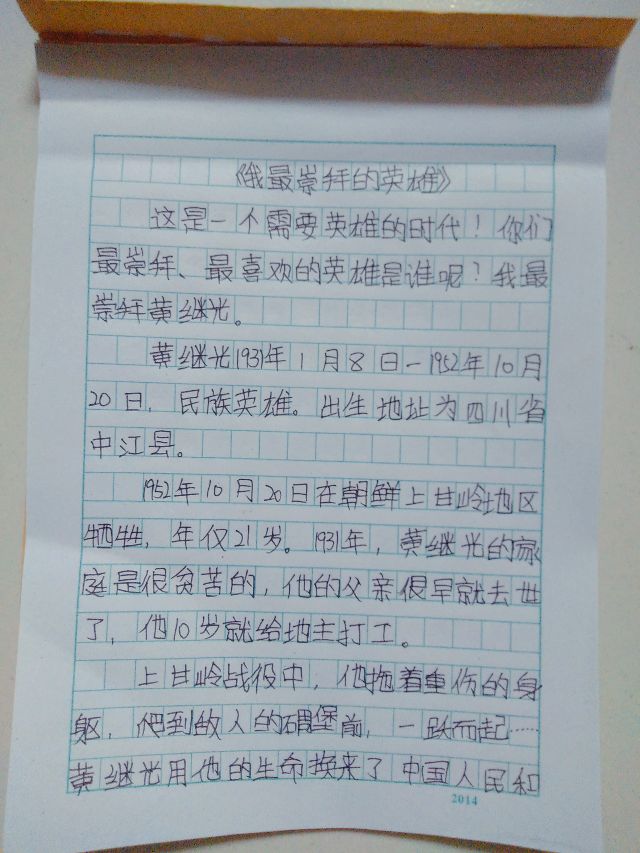 《我最崇拜的英雄》
这是一个需要英雄的时代！你们
最崇拜、最喜欢的英雄是谁呢？我最
崇拜黄继光。
黄继光1931年1月8日—1952年10月
20日，民族英雄。出生地址为四川省
中江县。
1952年10月20日在朝鲜上甘岭地区
牺牲，年仅21岁。1931年，黄继光的家
庭是很贫苦的，他的父亲很早就去世
了，他10岁就给地主打工。
上甘岭战役中，他拖着重伤的身
躯，爬到敌人的碉堡前，一跃而起……
黄继光用他的生命换来了中国人民和
2014